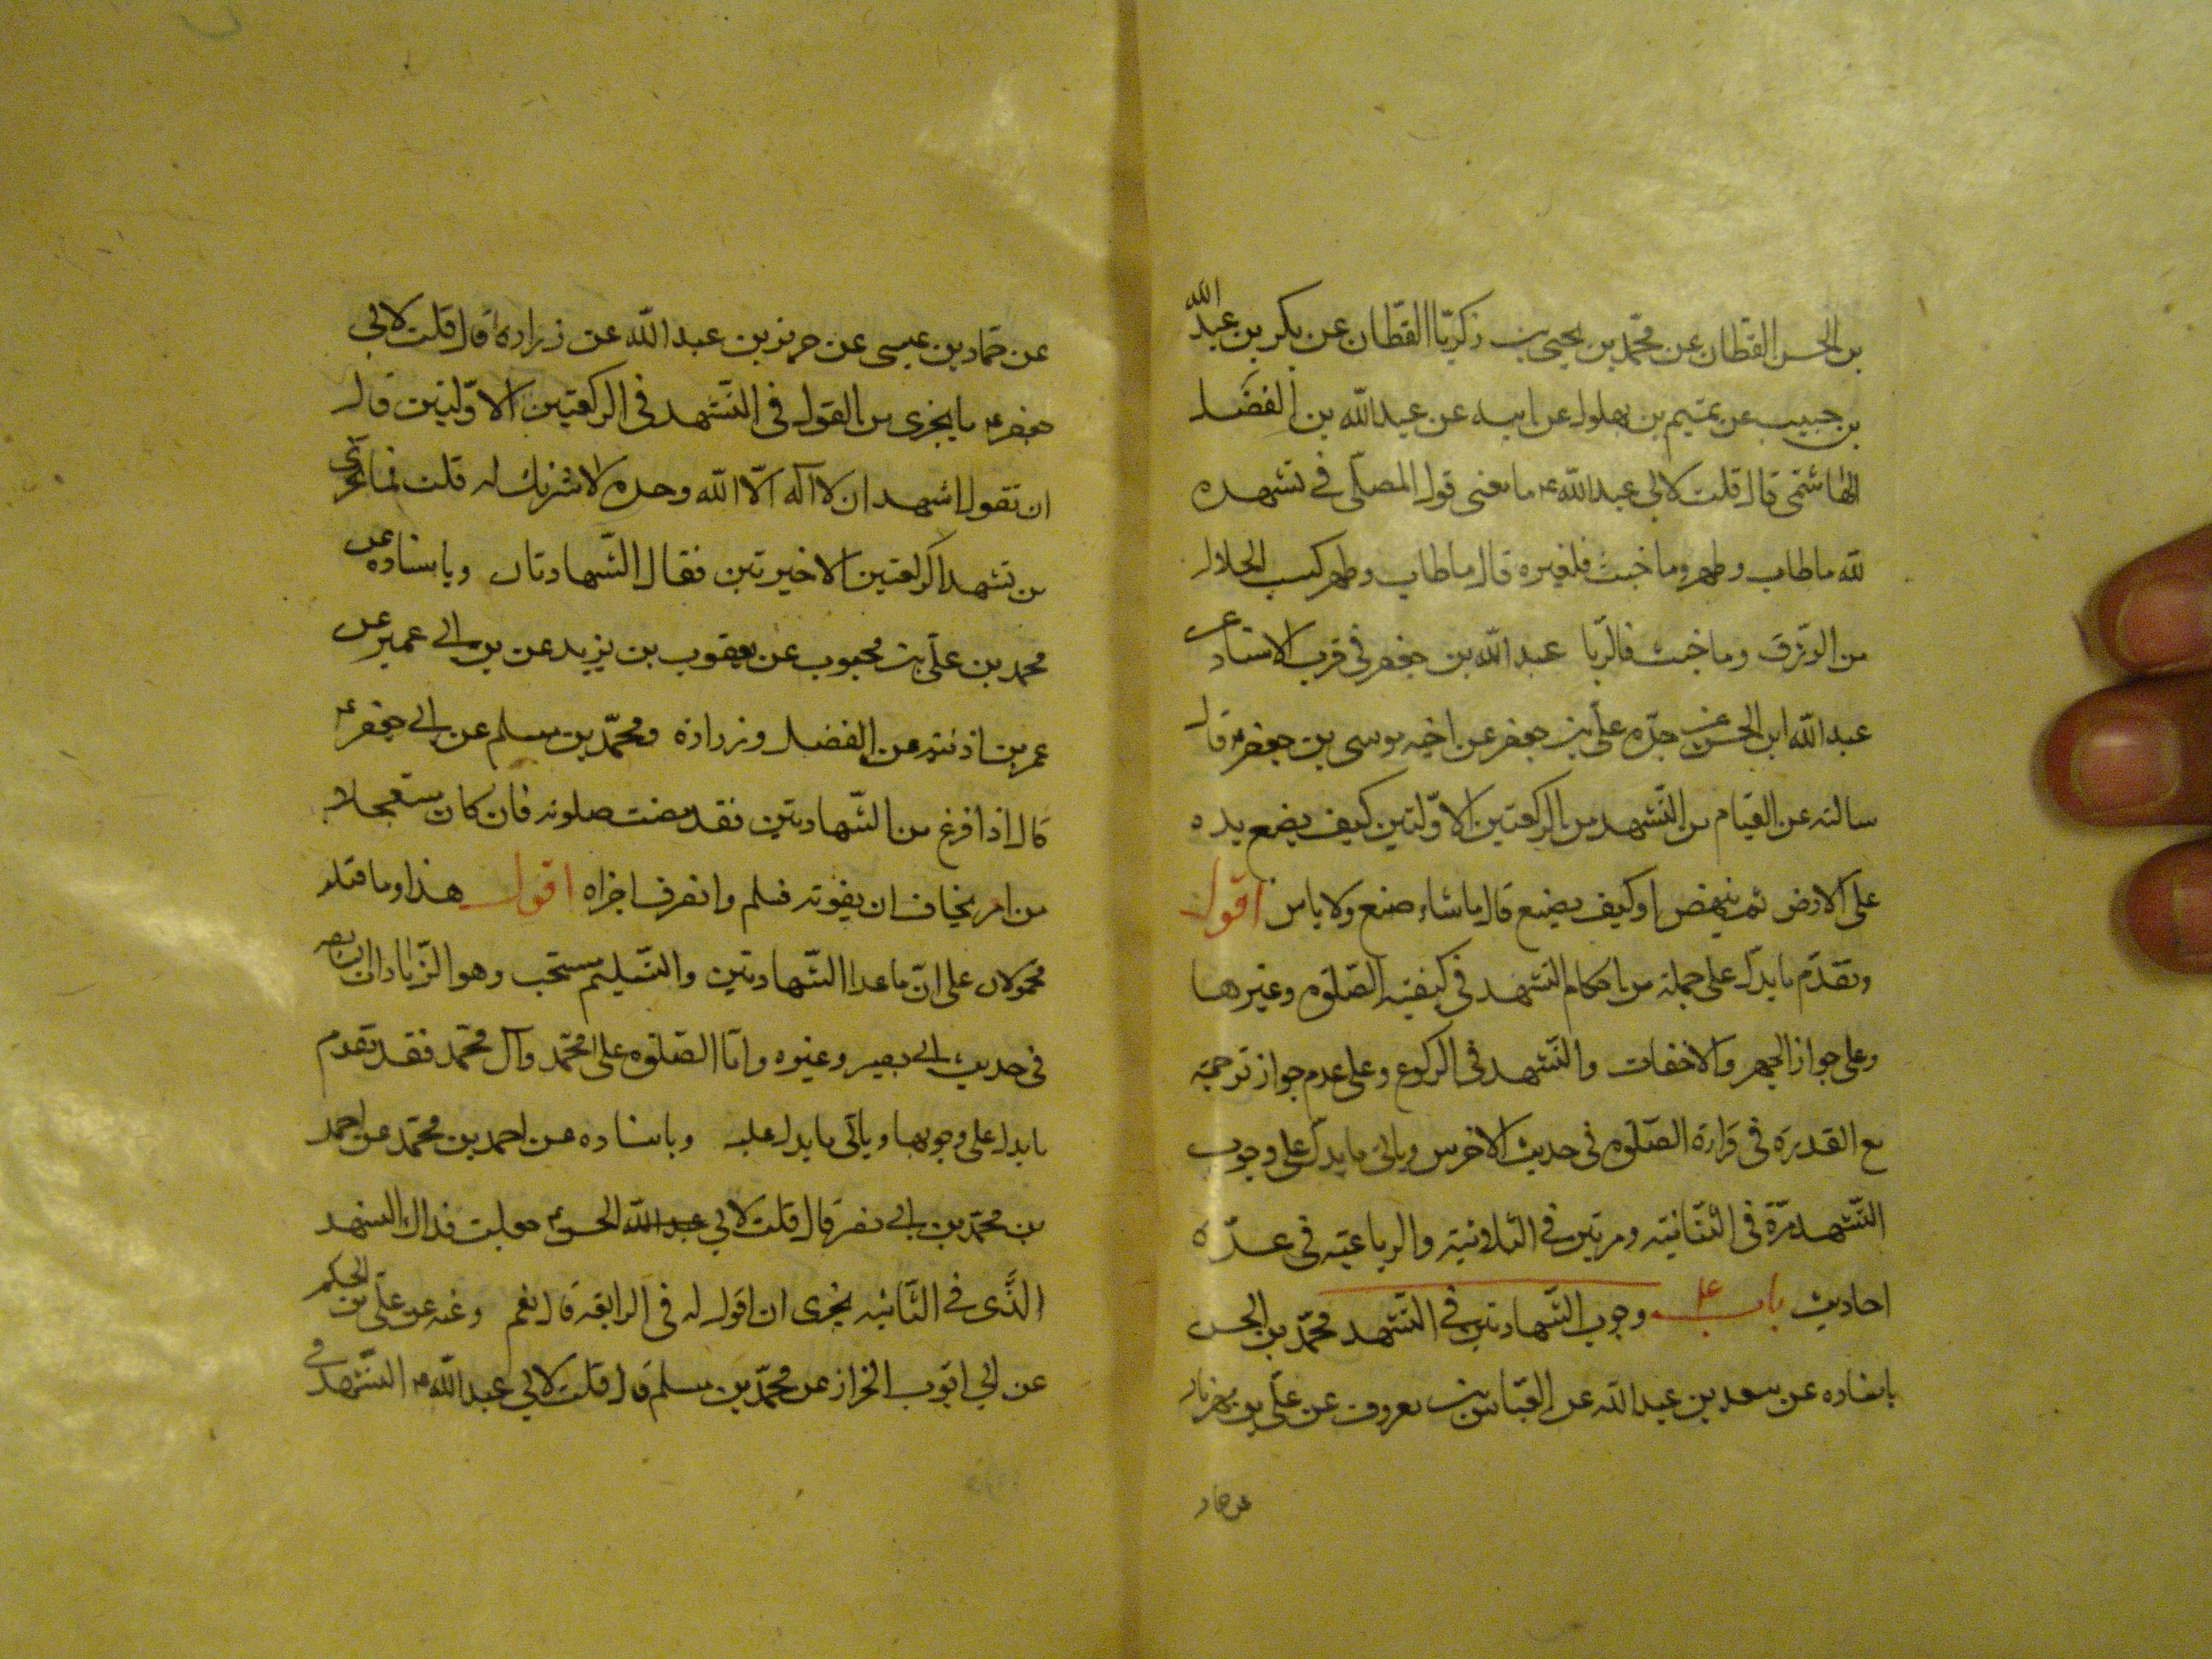 بن الحسن القطّان عن محمّد بن يحيى بن زكريّا القطّان عن بكر بن عبد الله
بن حبيب عن تميم بن بهلول عن ابيه عن عبد الله بن الفضل
الهاشمّى قال قلت لابى عبد الله ع ما معنى قول المصلّى فى تشهده
لله ما طاب وطهر وما خبث فلغيره قال ما طاب وطهر كسب الحلال
من الرّزق وما خبث فالرّبا عبد الله بن جعفر فى قرب الاسناد عن
عبد الله ابن الحسن عن جدّه علّى بن جعفر عن اخيه موسى بن جعفر ع قال
سالته عن القيام من التّشهد من الركعتين الاوّلتين كيف يضع يده
على الارض ثم ينهض او كيف يصنع قال ما شاء صنع ولا باس اقول
وتقدّم ما يدلّ على جملة من احكام التشهد فى كيفيّة الصّلوة وغيرها
وعلى جواز الجهر والاخفات والتّشهد فى الركوع وعلى عدم جواز ترجمته
مع القدرة فى قراءة الصّلوة فى حديث الاخرس وياتى ما يدلّ على وجوب
التّشهد مرّة فى الثّنائيّة ومرتين فى الثّلاثيّة والرباعيّه فى عدّة
احاديث باب ٤ وجوب الشّهادتين فى التّشهد محمّد بن الحسن
باسناده عن سعد بن عبد الله عن العبّاس بن معروف عن علّى بن مهزيار
عن حماد
عن حمّاد بن عيسى عن حريز بن عبد اللّه عن زرارة قال قلت لابى
جعفر ع ما يجزى من القول فى التّشهد فى الركعتين الاوّلتين قال
ان تقول اشهد ان لا اله الّا اللّه وحده لا شريك له قلت فما يجزى
من تشهد الركعتين الاخيرتين فقال الشّهادتان وباسناده عن
محمد بن علّى بن محبوب عن يعقوب بن يزيد عن بن ابى عمير عن
عمر بن اذينة عن الفضيل وزرارة ومحمّد بن مسلم عن ابى جعفر ع
قال اذا فرغ من الشّهادتين فقد مضت صلوته فان كان مستعجلا
من امر يخاف ان يفوته فسلم وانصرف اجزاه اقول هذا وما قبله
محمولان على انّ ما عدا الشّهادتين والتّسليم مستحب وهو الزّيادات
فى حديث ابى بصير وغيره وامّا الصّلوة على محمّد وآل محمّد فقد تقدم
ما يدل على وجوبها وياتى ما يدل عليه وباسناده عن احمد بن محمّد عن احمد
بن محمّد بن ابى نصر قال قلت لابي عبد اللّه الحسن ع جعلت فداك التشهد
الذّى فى الثّانيه يجزى ان اقول له فى الرابعة قال نعم وعنه عن علّى بن الحكم
عن ابى ايّوب الخراز عن محمّد بن مسلم قال قلت لابي عبد اللّه ع التّشهد فى